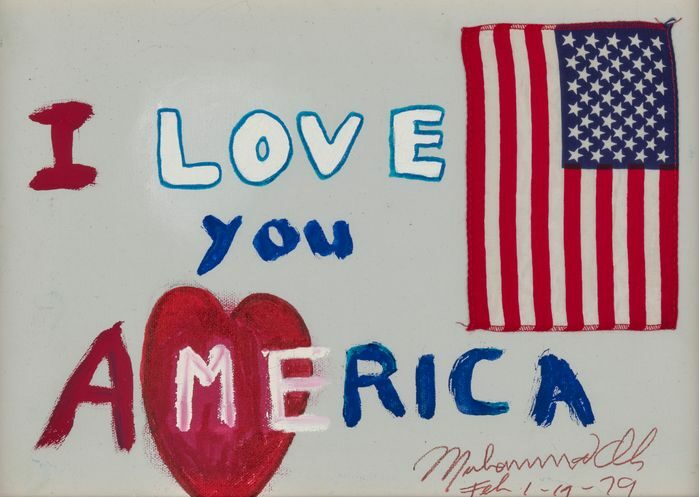 I LOVE
you
AMERICA
Muhammad Ali
Feb 1-19-79